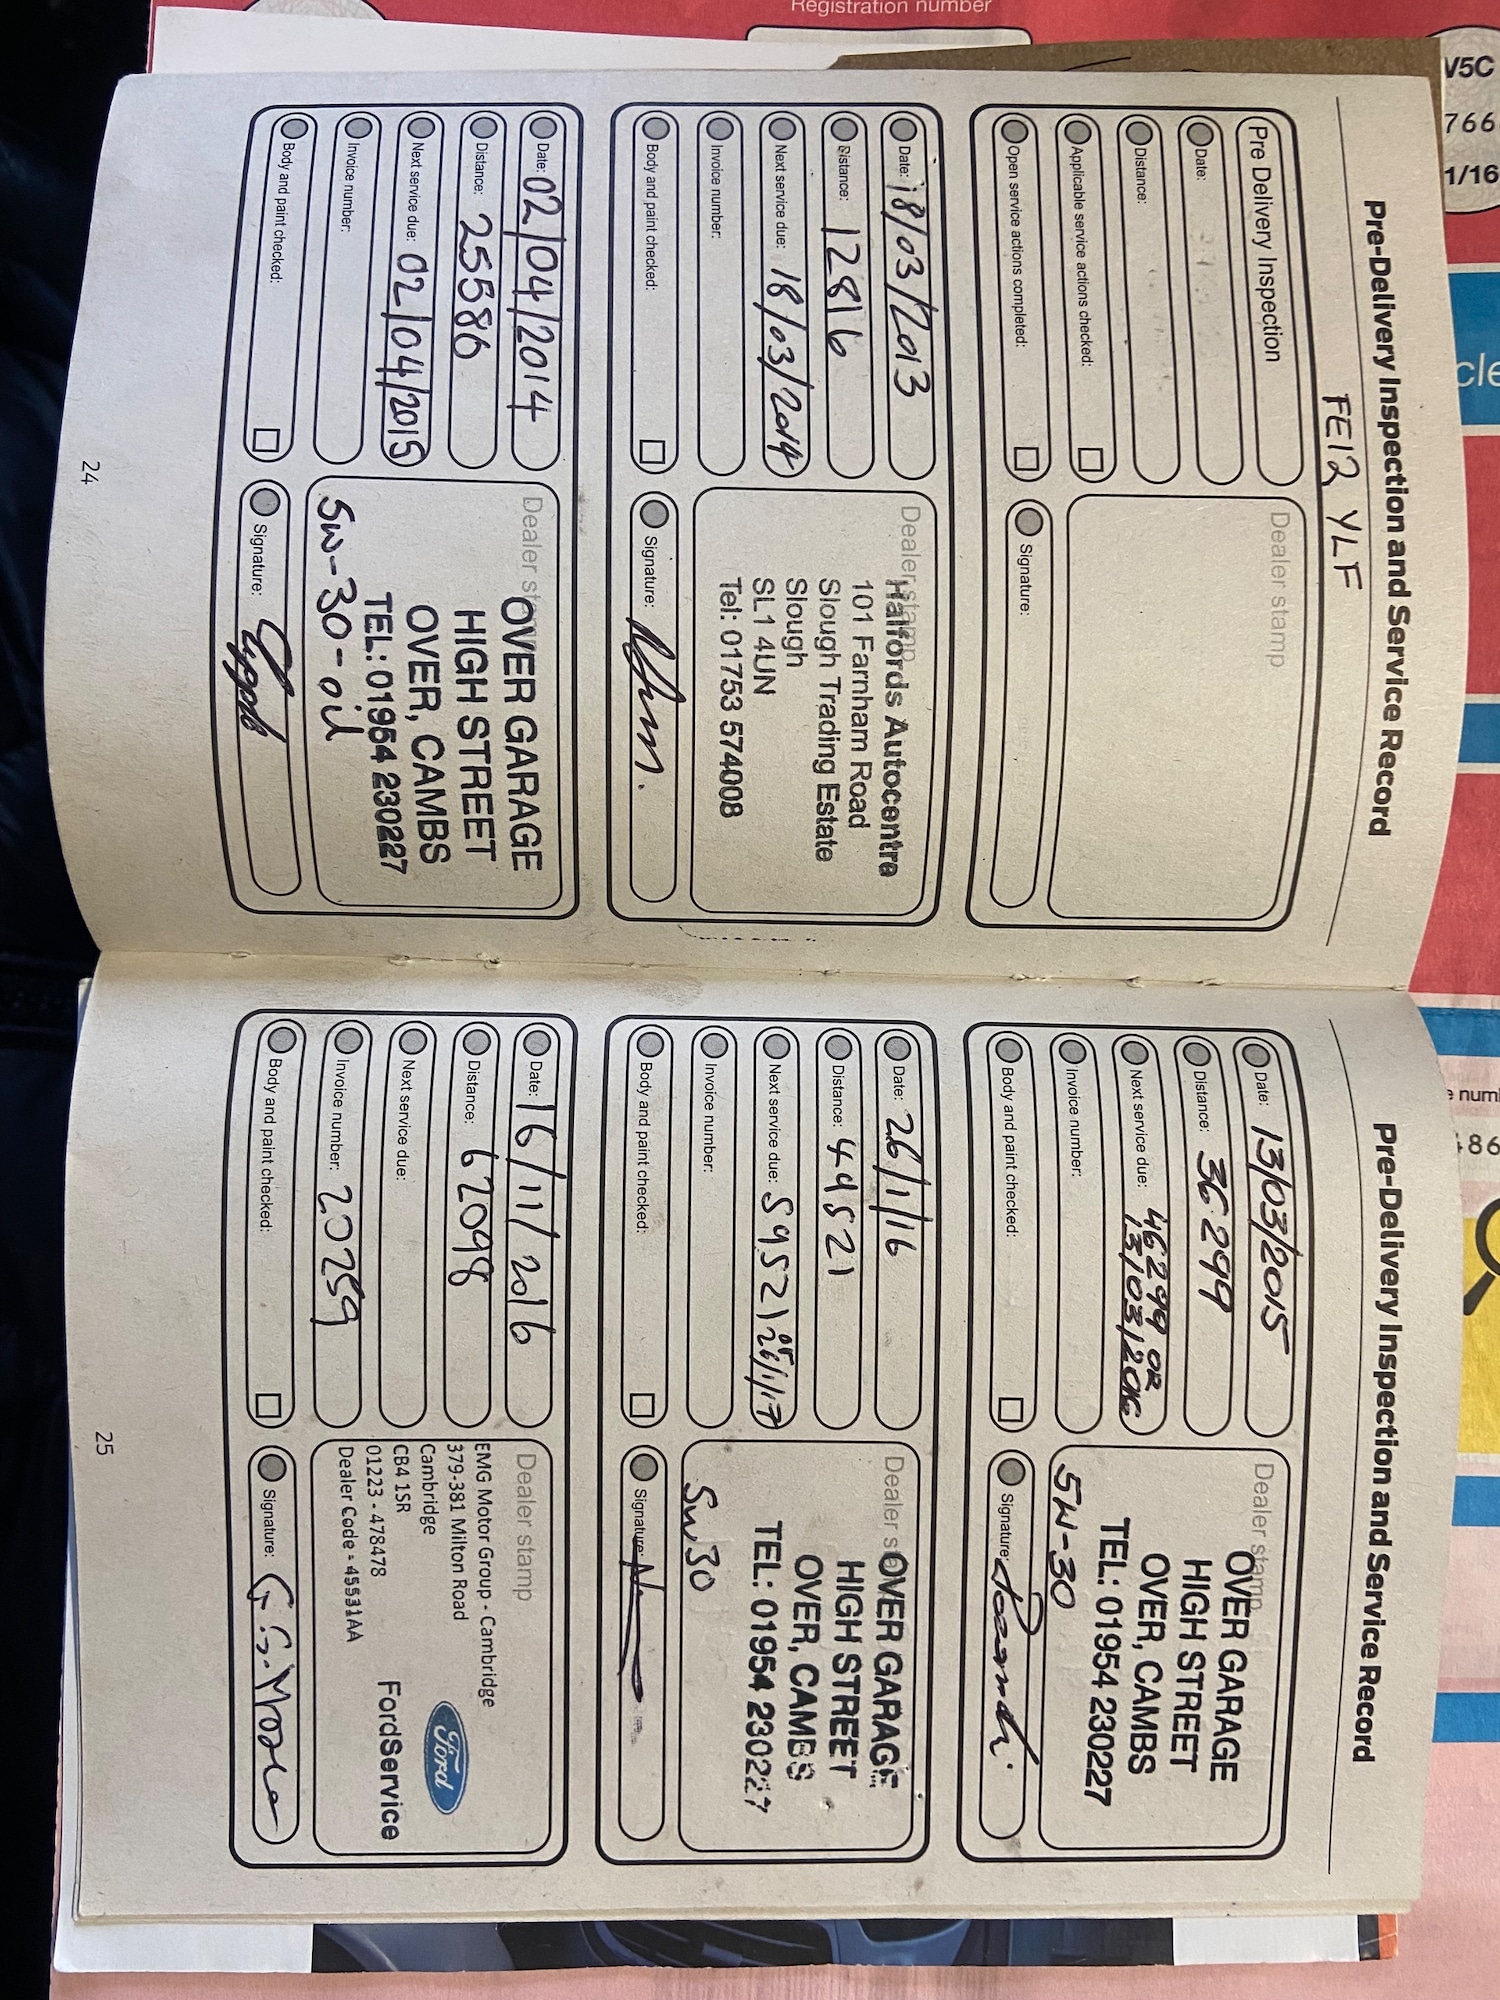 Registration number
V5C
766
1/16
cle
e num
486
Pre-Delivery Inspection and Service Record
FE12 YLF
Pre Delivery Inspection
Date:
Distance:
Applicable service actions checked:
Open service actions completed:
Dealer stamp
Signature:
Date: 18/03/2013
Distance: 12816
Next service due: 18/03/2014
Invoice number:
Body and paint checked:
Dealer stamp
Halfords Autocentre
101 Farnham Road
Slough Trading Estate
Slough
SL1 4UN
Tel: 01753 574008
Signature:
Date: 02/04/2014
Distance: 25586
Next service due: 02/04/2015
Invoice number:
Body and paint checked:
Dealer stamp
OVER GARAGE
HIGH STREET
OVER, CAMBS
TEL: 01954 230227
5w-30-oil
Signature:
24
Pre-Delivery Inspection and Service Record
Date: 13/03/2015
Distance: 36299
Next service due: 46299 OR
13/03/2016
Invoice number:
Body and paint checked:
Dealer stamp
OVER GARAGE
HIGH STREET
OVER, CAMBS
TEL: 01954 230227
5W-30
Signature:
Date: 26/1/16
Distance: 49521
Next service due: 59521 or 26/1/17
Invoice number:
Body and paint checked:
Dealer stamp
OVER GARAGE
HIGH STREET
OVER, CAMBS
TEL: 01954 230227
5w30
Signature:
Date: 16/11/2016
Distance: 62098
Next service due:
Invoice number: 20259
Body and paint checked:
Dealer stamp
EMG Motor Group - Cambridge
379-381 Milton Road
Cambridge
CB4 1SR
01223 - 478478
Dealer Code = 45531AA
Ford
FordService
Signature:
25